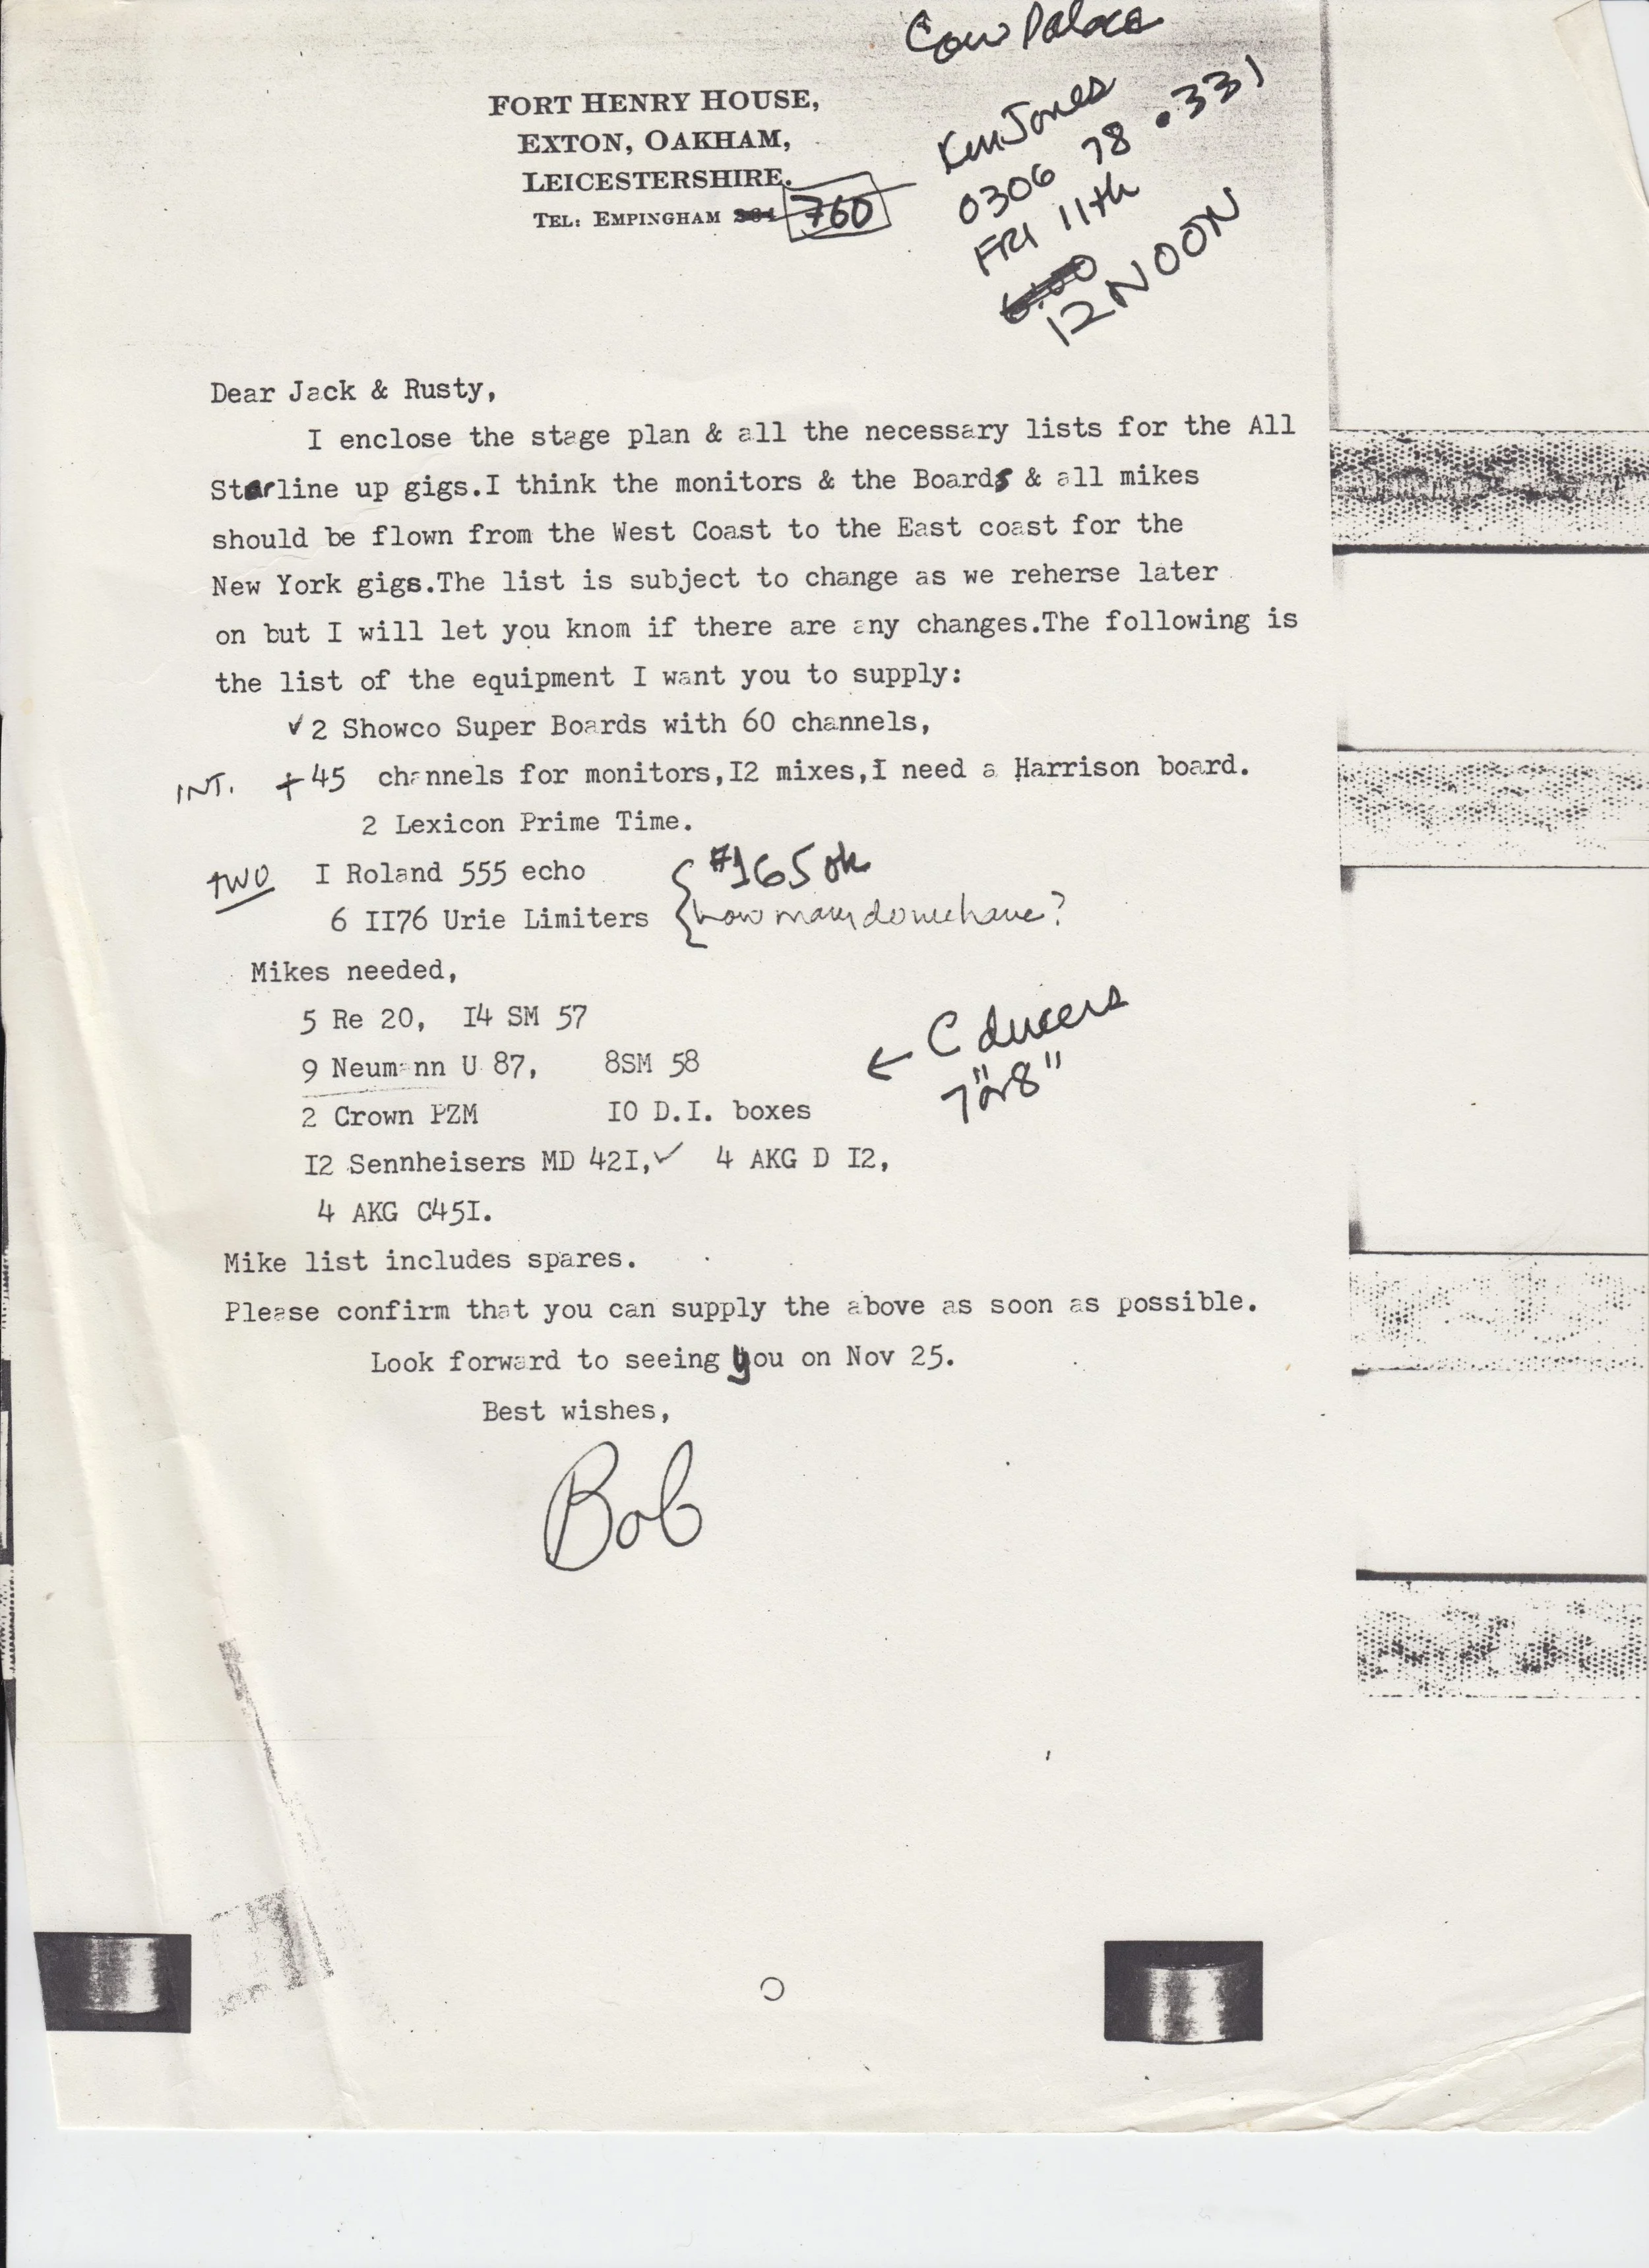 Cow Palace
FORT HENRY HOUSE,
EXTON, OAKHAM,
LEICESTERSHIRE.
TEL: EMPINGHAM 760
Ken Jones
0306 78 .331
FRI 11th
6:00
12 NOON
Dear Jack & Rusty,
I enclose the stage plan & all the necessary lists for the All
Starline up gigs.I think the monitors & the Boards & all mikes
should be flown from the West Coast to the East coast for the
New York gigs.The list is subject to change as we reherse later
on but I will let you knom if there are any changes.The following is
the list of the equipment I want you to supply:
✓ 2 Showco Super Boards with 60 channels,
INT. + 45 channels for monitors,I2 mixes,I need a Harrison board.
2 Lexicon Prime Time.
TWO I Roland 555 echo { #165 ok
6 II76 Urie Limiters { how many do we have?
Mikes needed,
5 Re 20, I4 SM 57
9 Neumann U 87, 8SM 58 ← C ducers
7" or 8"
2 Crown PZM IO D.I. boxes
I2 Sennheisers MD 42I,✓ 4 AKG D I2,
4 AKG C45I.
Mike list includes spares.
Please confirm that you can supply the above as soon as possible.
Look forward to seeing you on Nov 25.
Best wishes,
Bob